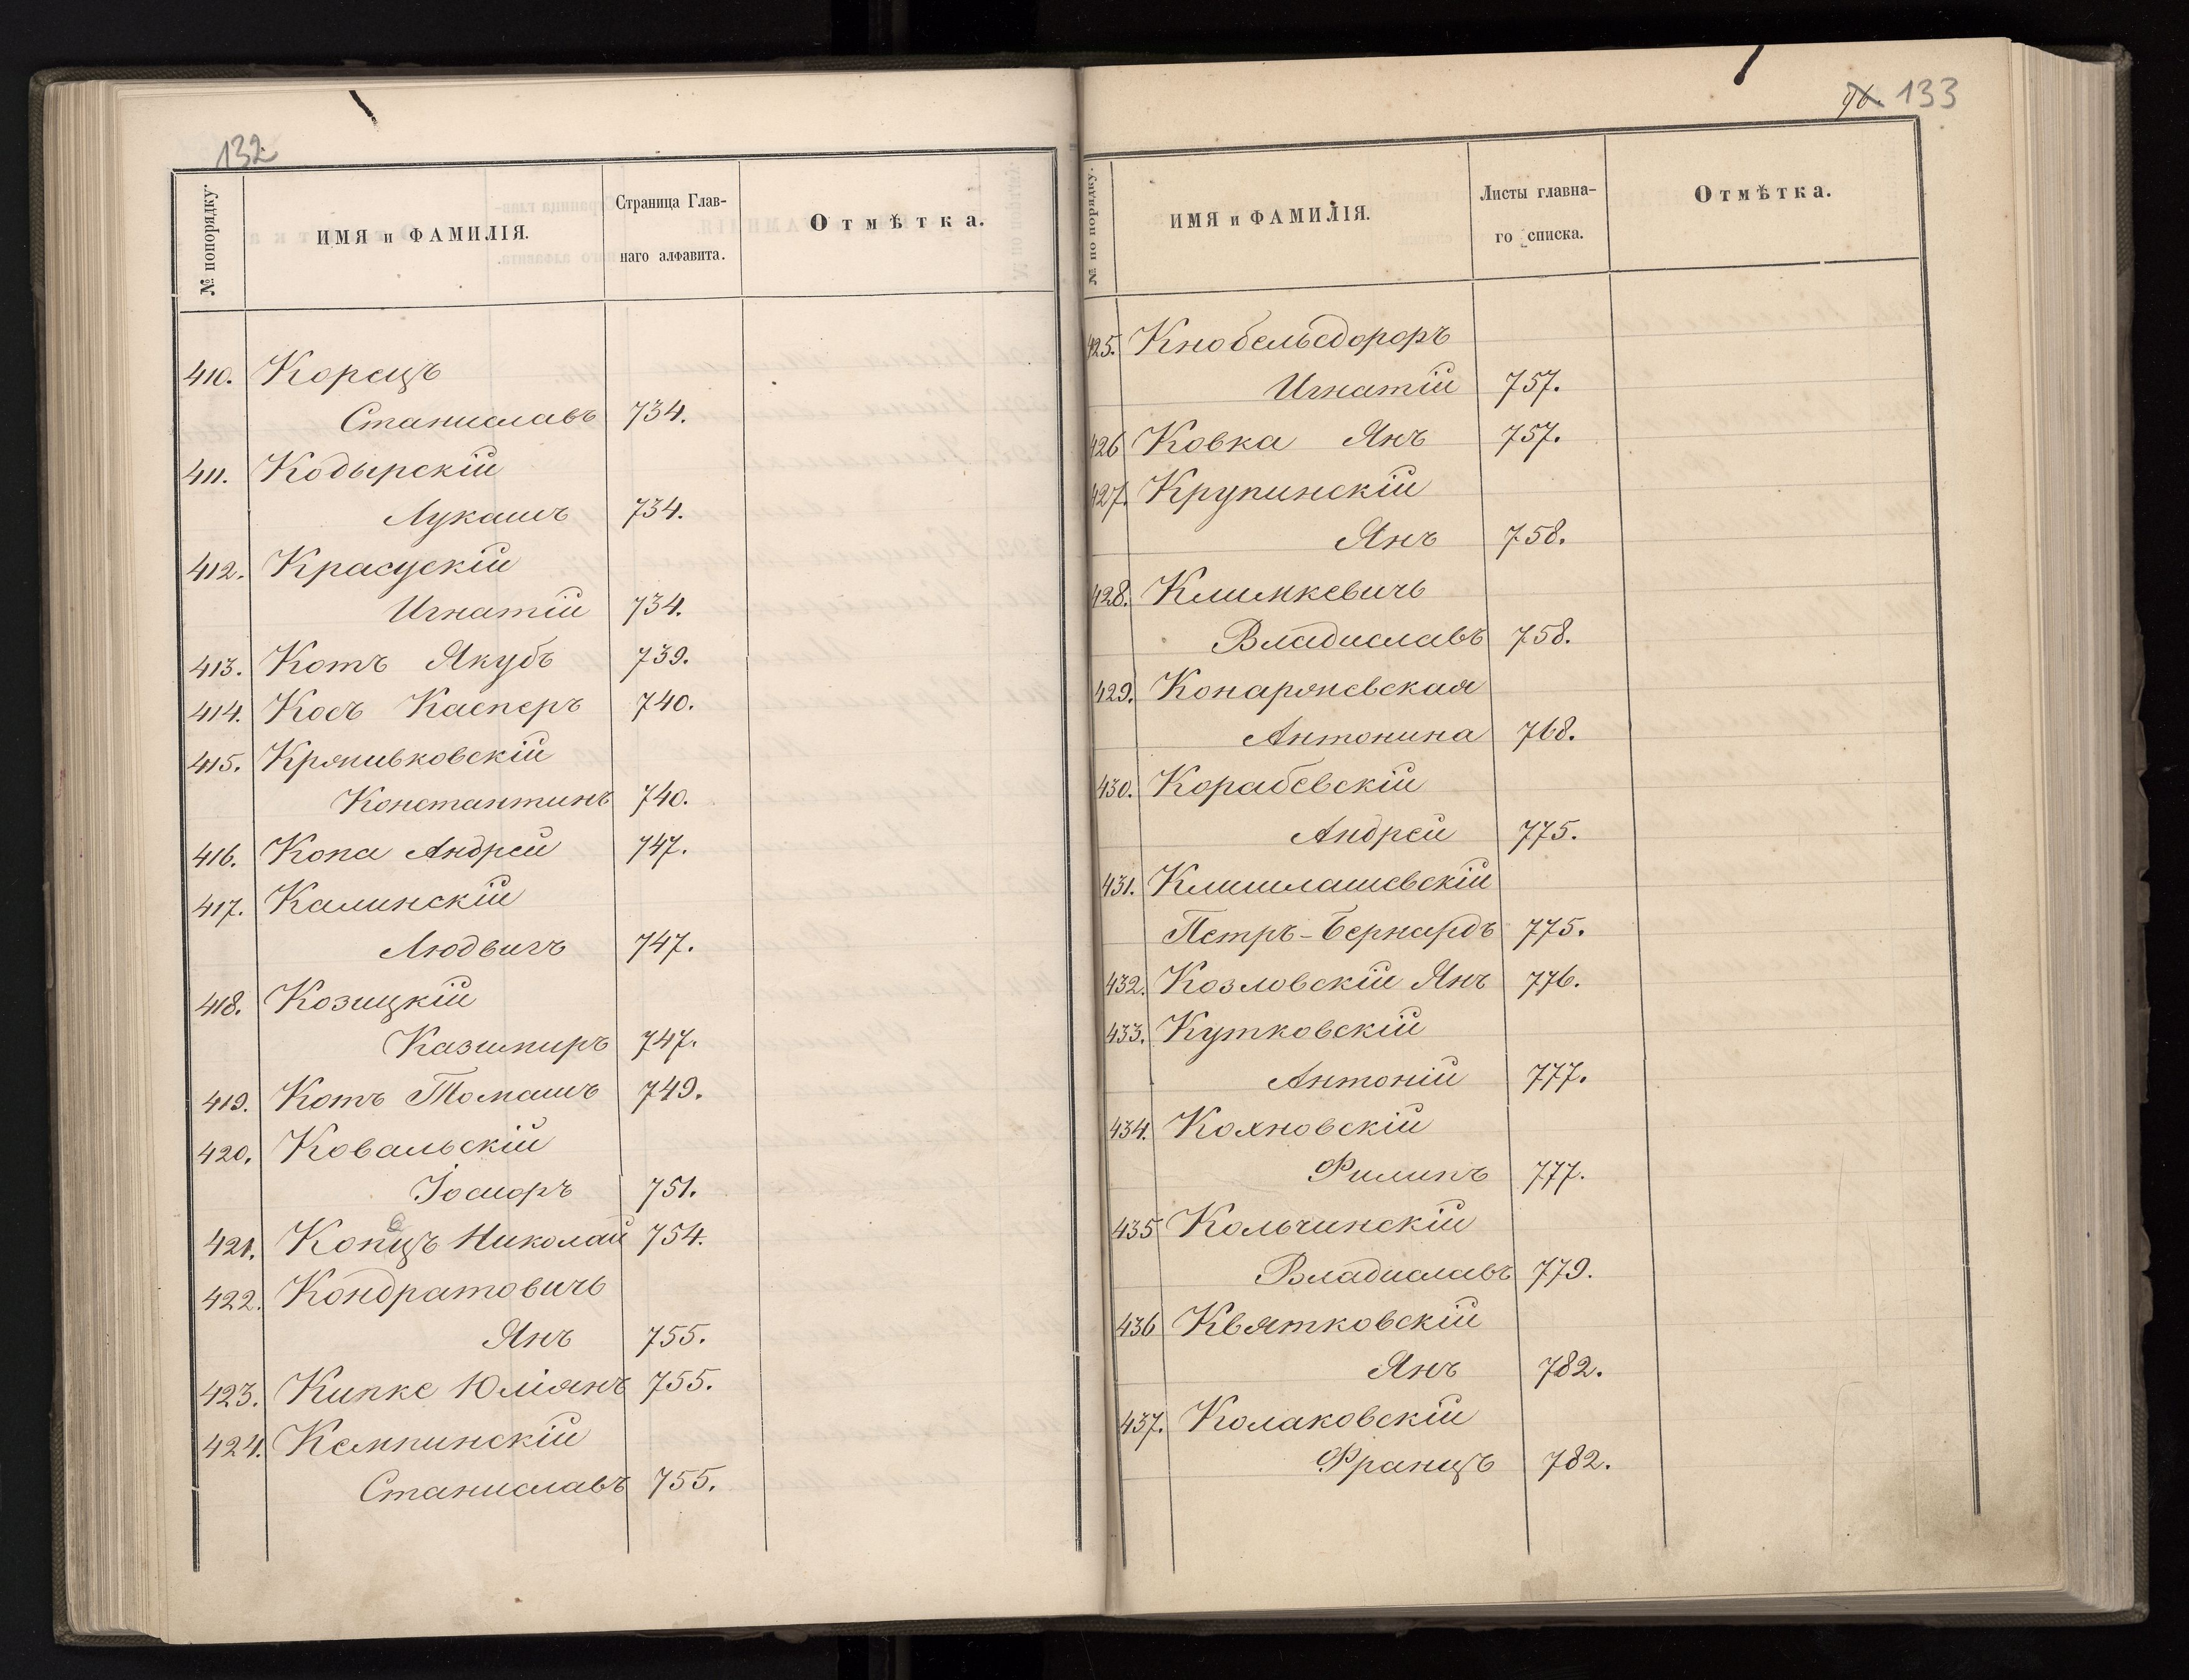 132
№ попорядку.
ИМЯ и ФАМИЛІЯ.
Страница Глав-
наго алфавита.
Отмѣтка.
410. Корецъ
Станиславъ 734.
411. Кодырскій
Лукашъ 734.
412. Красускій
Игнатій 734.
413. Котъ Якубъ 739.
414. Косъ Касперъ 740.
415. Крживковскій
Константинъ 740.
416. Копа Андрей 747.
417. Калинскій
Людвигъ 747.
418. Козицкій
Казимиръ 747.
419. Котъ Томашъ 749.
420. Ковальскій
Іосифъ 751.
421. Копецъ Николай 754.
422. Кондратовичъ
Янъ 755.
423. Кипке Юліянъ 755.
424. Кемпинскій
Станиславъ 755.
96. 133
№ по порядку.
ИМЯ и ФАМИЛІЯ.
Листы главна-
го списка.
Отмѣтка.
425. Кнобельсдорфъ
Игнатій 757.
426 Ковка Янъ 757.
427. Крупинскій
Янъ 758.
428. Климкевичъ
Владиславъ 758.
429. Конаржевская
Антонина 768.
430. Корабевскій
Андрей 775.
431. Климашевскій
Петръ-Бернардъ 775.
432. Козловскій Янъ 776.
433. Кутковскій
Антоній 777.
434. Кохновскій
Филипъ 777.
435 Кольчинскій
Владиславъ 779.
436 Квятковскій
Янъ 782.
437. Колаковскій
Францъ 782.